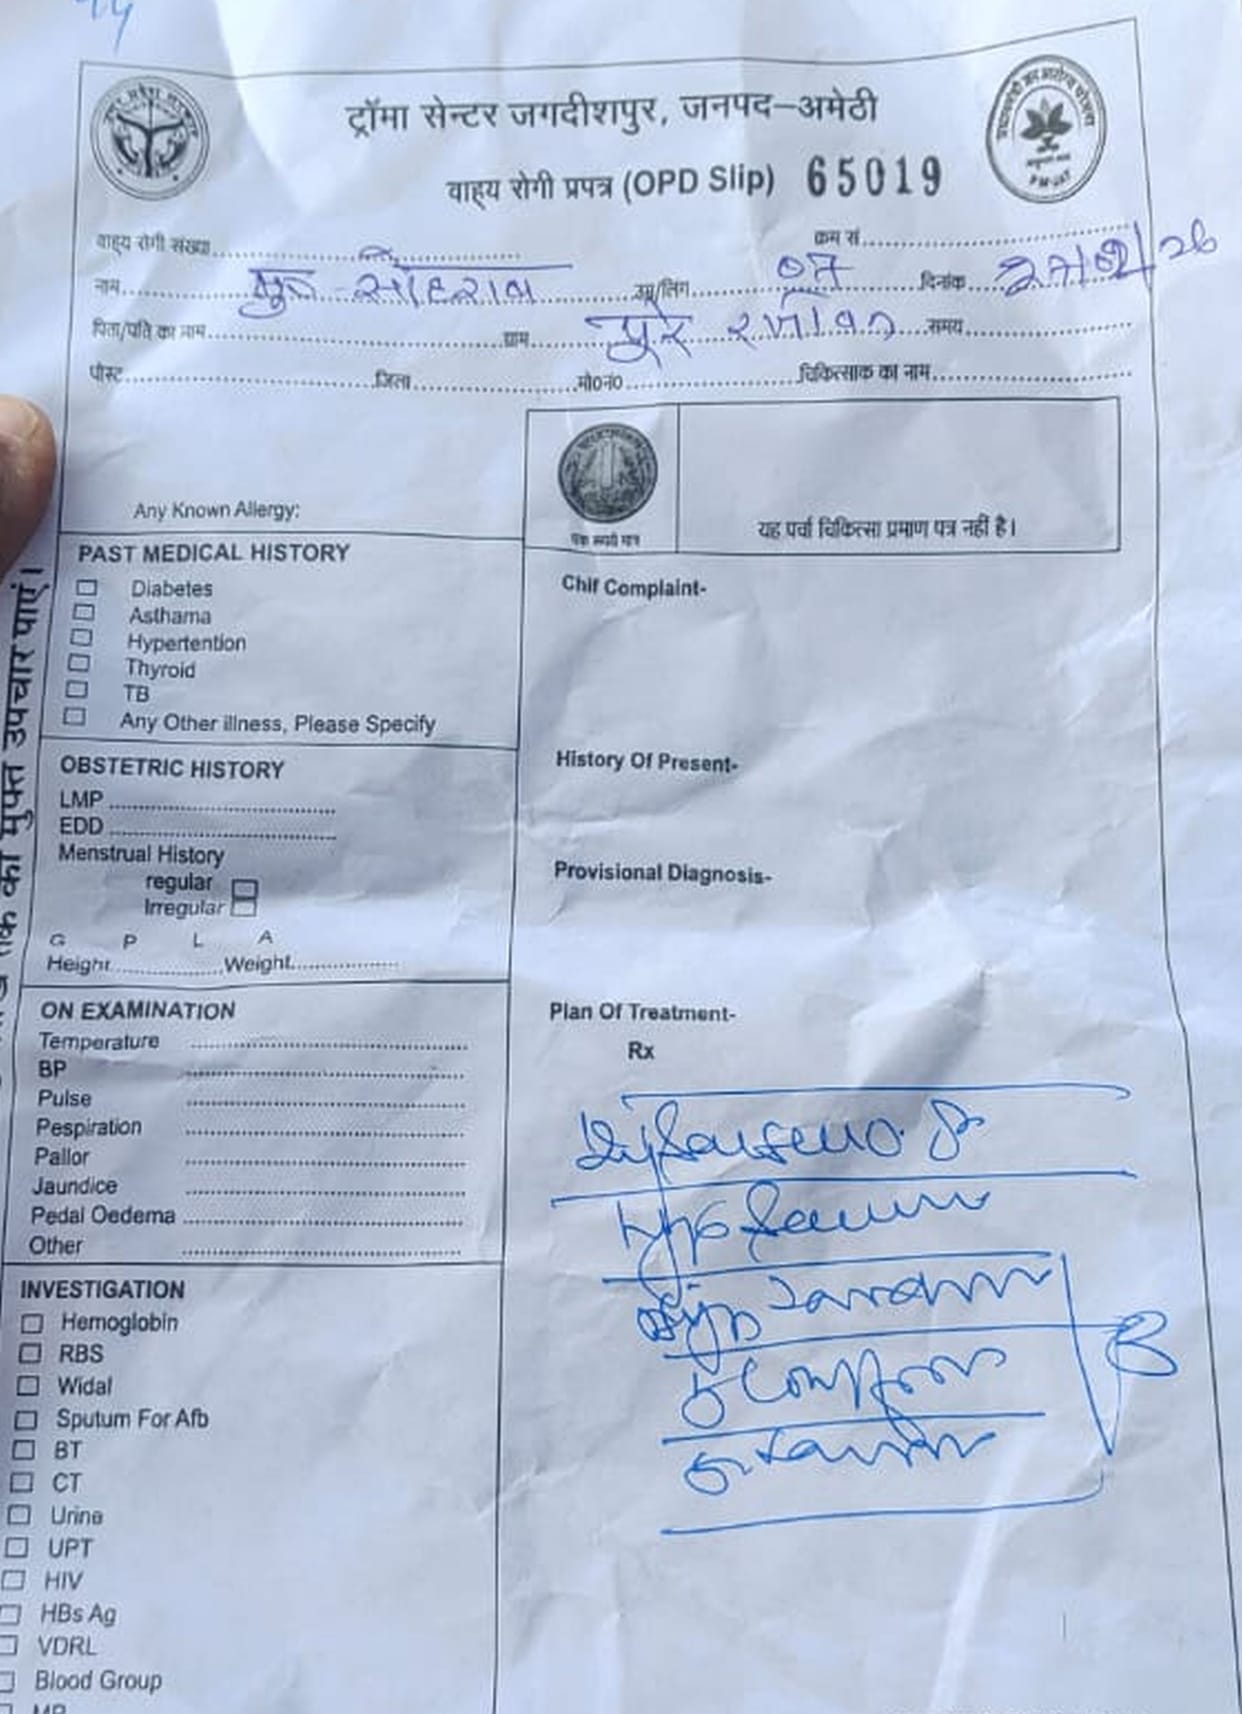 ट्रॉमा सेन्टर जगदीशपुर, जनपद–अमेठी
वाहय रोगी प्रपत्र (OPD Slip) 65019
वाहय रोगी संख्या
क्रम सं.
नाम मु० सोहराब उम्र/लिंग 07 दिनांक 27/02/26
पिता/पति का नाम ग्राम पूरे समय
पोस्ट जिला मो0नं0 चिकित्साक का नाम
Any Known Allergy:
यह पर्चा चिकित्सा प्रमाण पत्र नहीं है।
PAST MEDICAL HISTORY
Diabetes
Asthama
Hypertention
Thyroid
TB
Any Other illness, Please Specify
OBSTETRIC HISTORY
LMP
EDD
Menstrual History
regular
Irregular
G P L A
Height Weight
ON EXAMINATION
Temperature
BP
Pulse
Pespiration
Pallor
Jaundice
Pedal Oedema
Other
INVESTIGATION
Hemoglobin
RBS
Widal
Sputum For Afb
BT
CT
Urine
UPT
HIV
HBs Ag
VDRL
Blood Group
MP
Chif Complaint-
History Of Present-
Provisional Diagnosis-
Plan Of Treatment-
Rx
तक का मुफ्त उपचार पाएं।